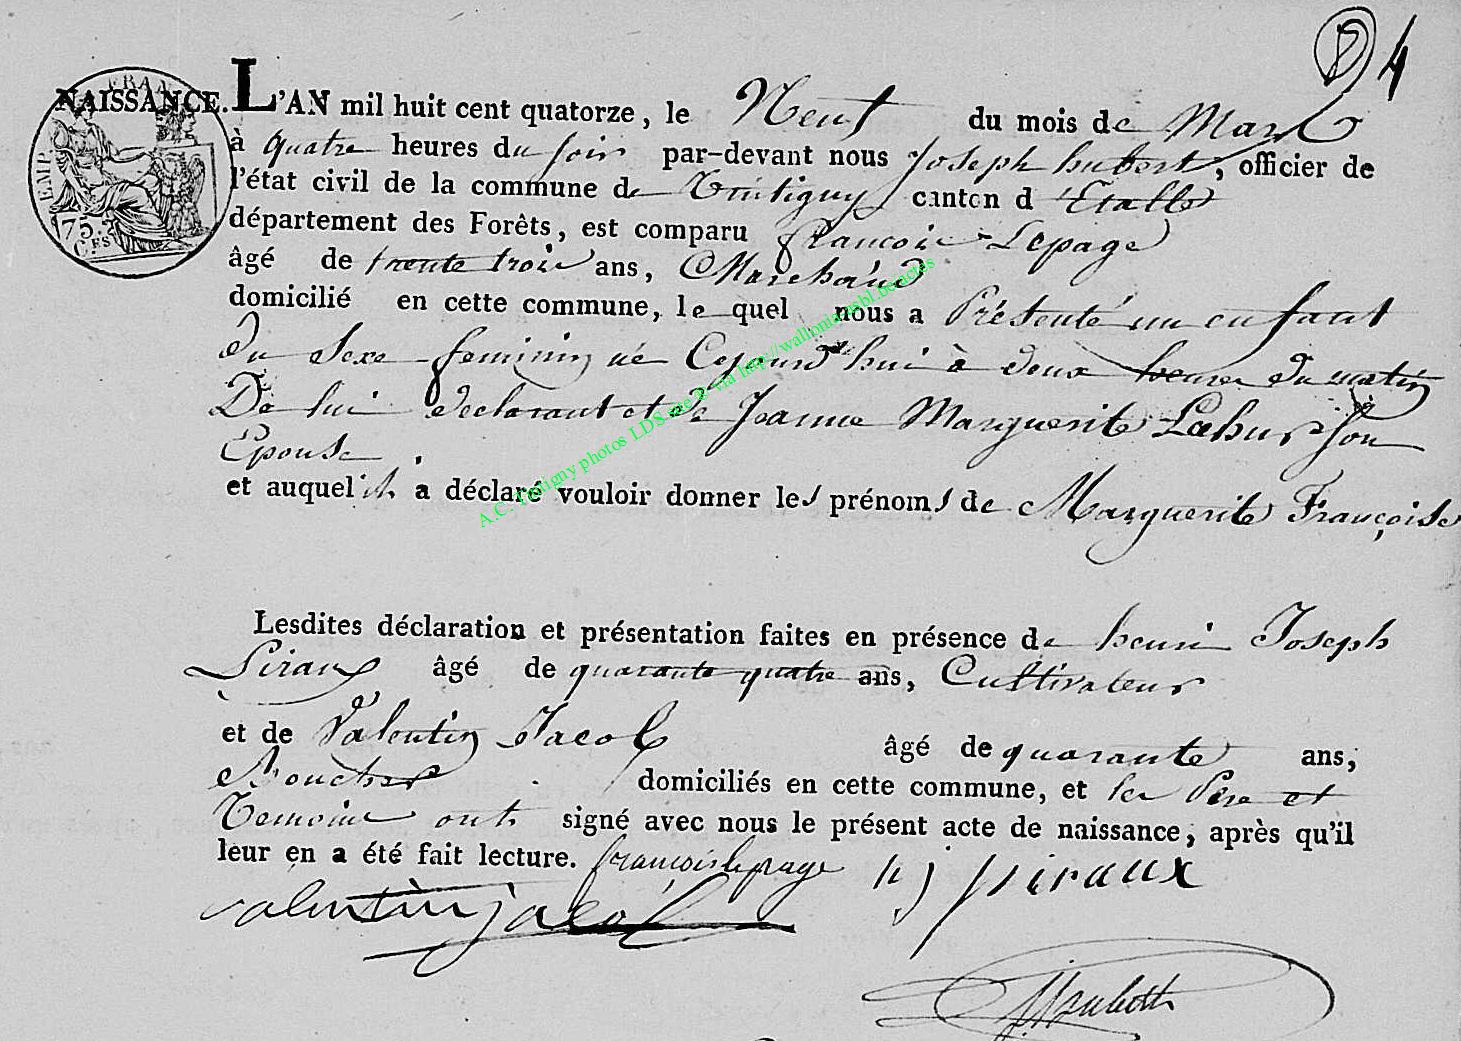 D 4
FRAN
NAISSANCE. L'AN mil huit cent quatorze, le Neuf du mois de Mars
à quatre heures du soir par-devant nous Joseph hubert, officier de
EMP.
l'état civil de la commune de Tintigny canton d'Etalle
75.c
C.ES
département des Forêts, est comparu francois Lepage
âgé de trente trois ans, Marchand
domicilié en cette commune, lequel nous a Présenté un enfant
du sexe feminin né Cejourd'hui à deux heures du matin
De lui declarant et de Jeanne Marguerite
Epouse
et auquel il a déclaré vouloir donner les prénoms de Marguerite Françoise
A.C. Tintigny photos LDS site & via http://wallonia-asbl.be/actes
Lesdites déclaration et présentation faites en présence de henri Joseph
Piraux âgé de quarante quatre ans, Cultivateur
et de Valentin Jacob âgé de quarante ans,
Boucher domiciliés en cette commune, et les Pere et
Temoins ont signé avec nous le présent acte de naissance, après qu'il
leur en a été fait lecture. francois lepage h j piraux
valentin jacob